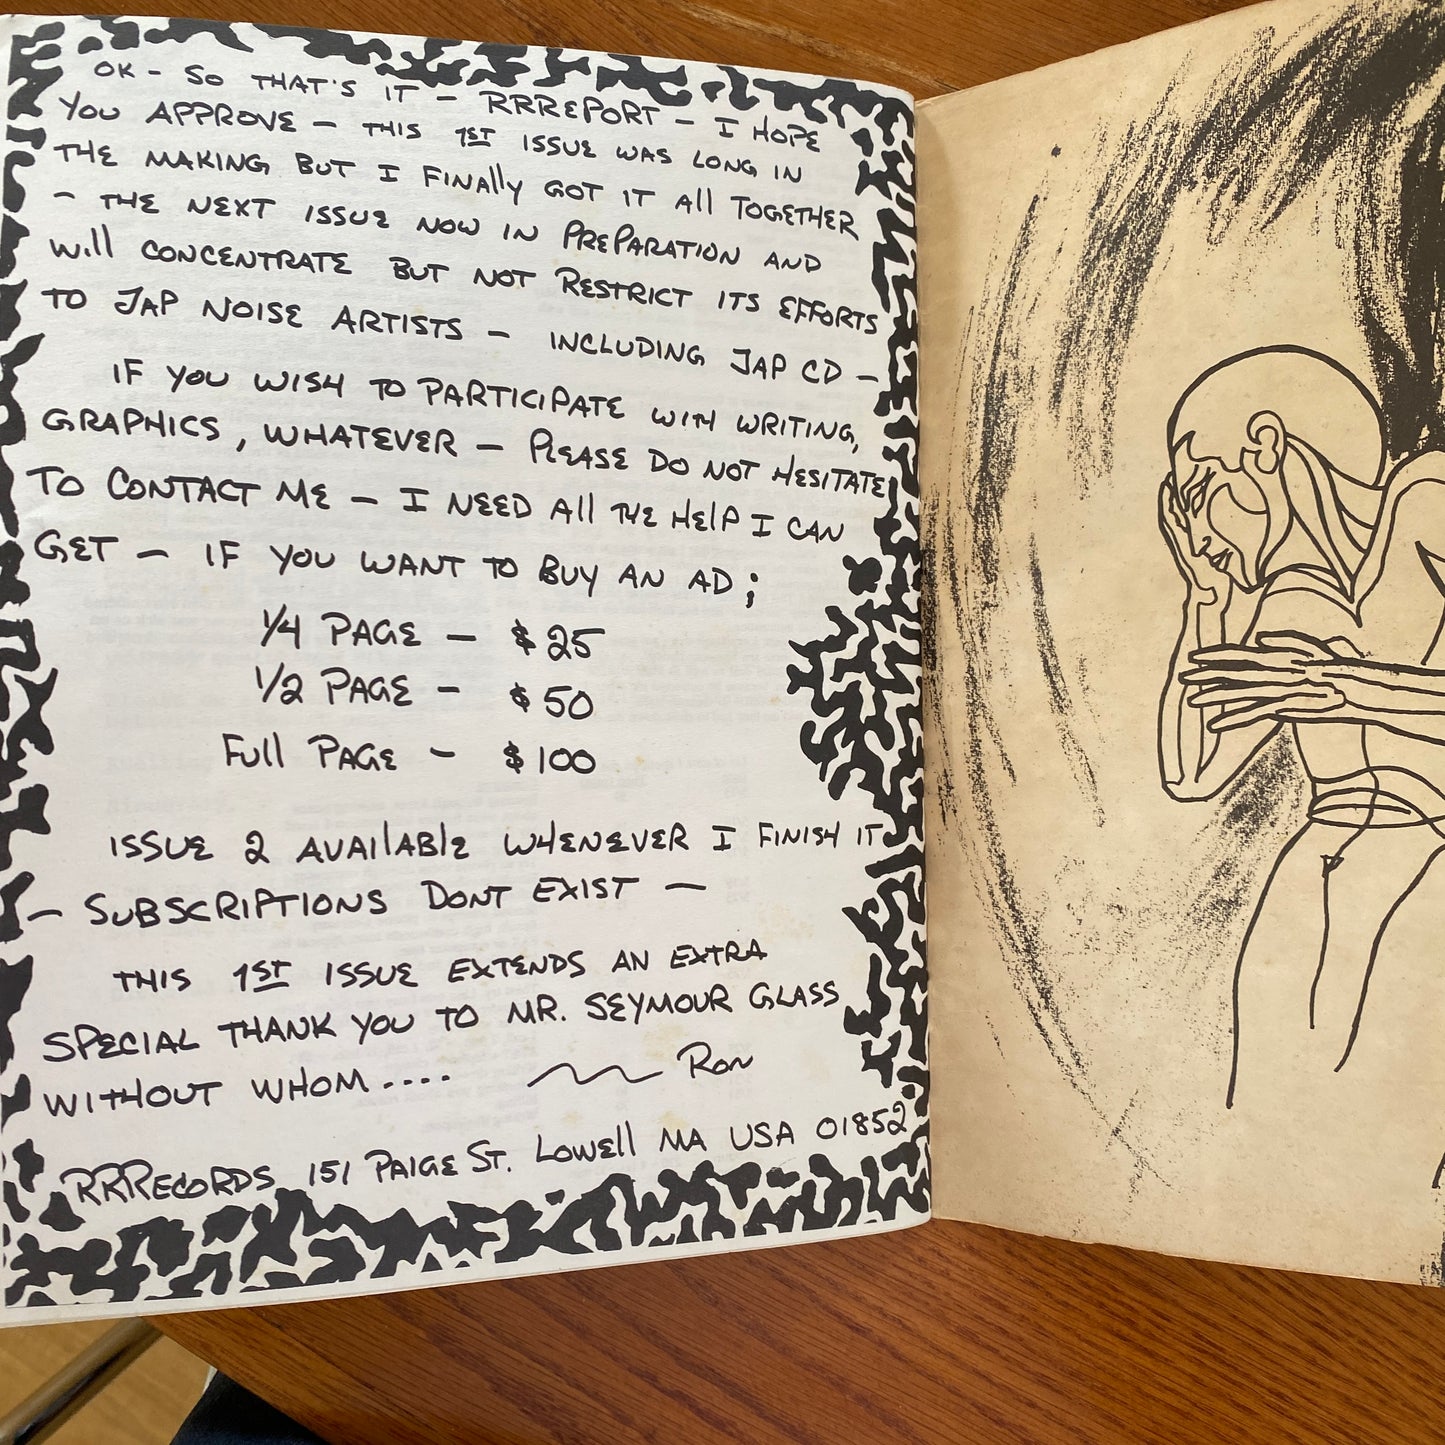 OK - SO THAT'S IT - RRREPORT - I HOPE
YOU APPROVE - THIS 1ST ISSUE WAS LONG IN
THE MAKING BUT I FINALLY GOT IT ALL TOGETHER
- THE NEXT ISSUE NOW IN PREPARATION AND
WILL CONCENTRATE BUT NOT RESTRICT ITS EFFORTS
TO JAP NOISE ARTISTS - INCLUDING JAP CD -
IF YOU WISH TO PARTICIPATE WITH WRITING,
GRAPHICS, WHATEVER - PLEASE DO NOT HESITATE
TO CONTACT ME - I NEED ALL THE HELP I CAN
GET - IF YOU WANT TO BUY AN AD;
1/4 PAGE - $25
1/2 PAGE - $50
FULL PAGE - $100
ISSUE 2 AVAILABLE WHENEVER I FINISH IT
- SUBSCRIPTIONS DONT EXIST -
THIS 1ST ISSUE EXTENDS AN EXTRA
SPECIAL THANK YOU TO MR. SEYMOUR GLASS
WITHOUT WHOM.... RON
RRRECORDS 151 PAIGE ST. LOWELL MA USA 01852